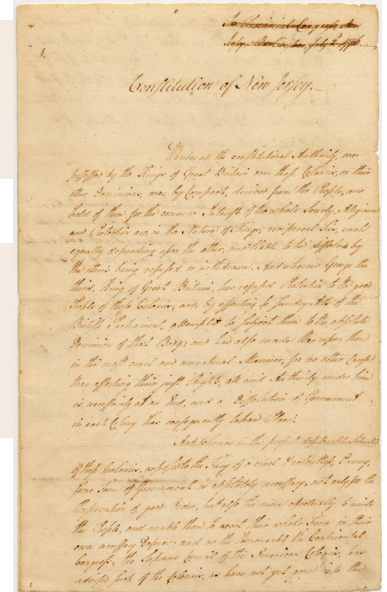 In Provincial Congress, New
Jersey, Burlington, July 2d 1776.
1.
Constitution of New Jersey.
Whereas all the constitutional Authority, ever
possessed by the Kings of Great Britain over these Colonies, or their
other Dominions, was, by Compact, derived from the People, and
held of them for the common Interest of the whole Society, Allegiance
and Protection are, in the Nature of Things, reciprocal Ties, each
equally depending upon the other, and liable to be dissolved by
the others being refused or withdrawn. And whereas George the
third, King of Great Britain, has refused Protection to the good
People of these Colonies, and, by assenting to sundry Acts of the
British Parliament, attempted to subject them to the absolute
Dominion of that Body; and has also made War upon them
in the most cruel and unnatural Manner, for no other Cause
than asserting their just Rights, all civil Authority under him
is necessarily at an End, and a Dissolution of Government
in each Colony has consequently taken Place.
And whereas in the present deplorable Situation
of these Colonies, exposed to the Fury of a cruel & relentless Enemy,
some Form of Government is absolutely necessary, not only for the
Preservation of good Order, but also the more effectually to unite
the People, and enable them to exert their whole Force in their
own necessary Defence: and as the Honorable the Continental
Congress, the Supreme Council of the American Colonies, has
advised such of the Colonies, as have not yet gone into the